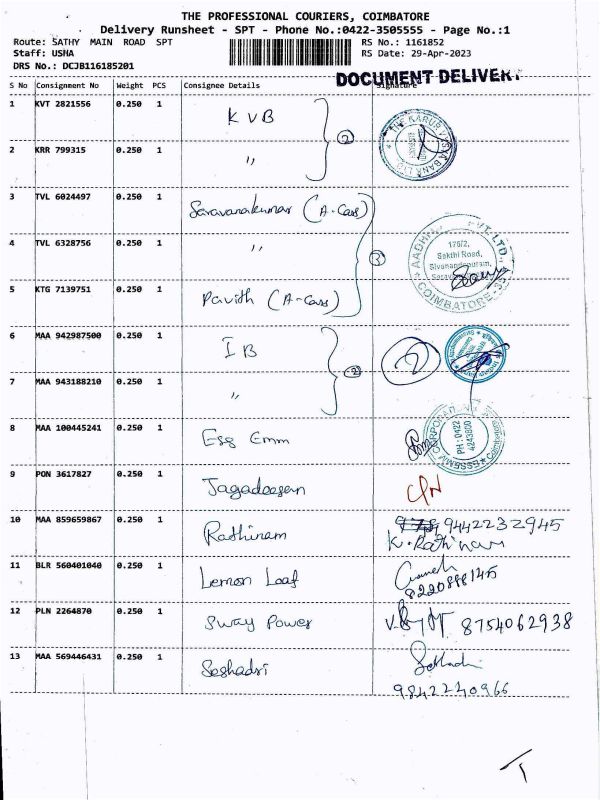 THE PROFESSIONAL COURIERS, COIMBATORE
Delivery Runsheet - SPT - Phone No.:0422-3505555 - Page No.:1
Route: SATHY MAIN ROAD SPT RS No.: 1161852
Staff: USHA RS Date: 29-Apr-2023
DRS No.: DCJB116185201
DOCUMENT DELIVERY
S No Consignment No Weight PCS Consignee Details Signature
1 KVT 2821556 0.250 1 KVB
2 KRR 799315 0.250 1 " 2
3 TVL 6024497 0.250 1 Saravanakumar (A-Cass)
4 TVL 6328756 0.250 1 " 3
5 KTG 7139751 0.250 1 Pavith (A-Cass)
176/2,
Sakthi Road,
Sivanandapuram,
COIMBATORE
6 MAA 942987500 0.250 1 IB 2
7 MAA 943188210 0.250 1 " 2
8 MAA 100445241 0.250 1 Ess Emm
PH : 0422
4243800
9 PON 3617827 0.250 1 Jagadeesan
10 MAA 859659867 0.250 1 Rathinam 9442232945
K. Rathinam
11 BLR 560401040 0.250 1 Lemon Leaf
8220888145
12 PLN 2264870 0.250 1 Sway Power 8754062938
13 MAA 569446431 0.250 1 Seshadri
9842240966